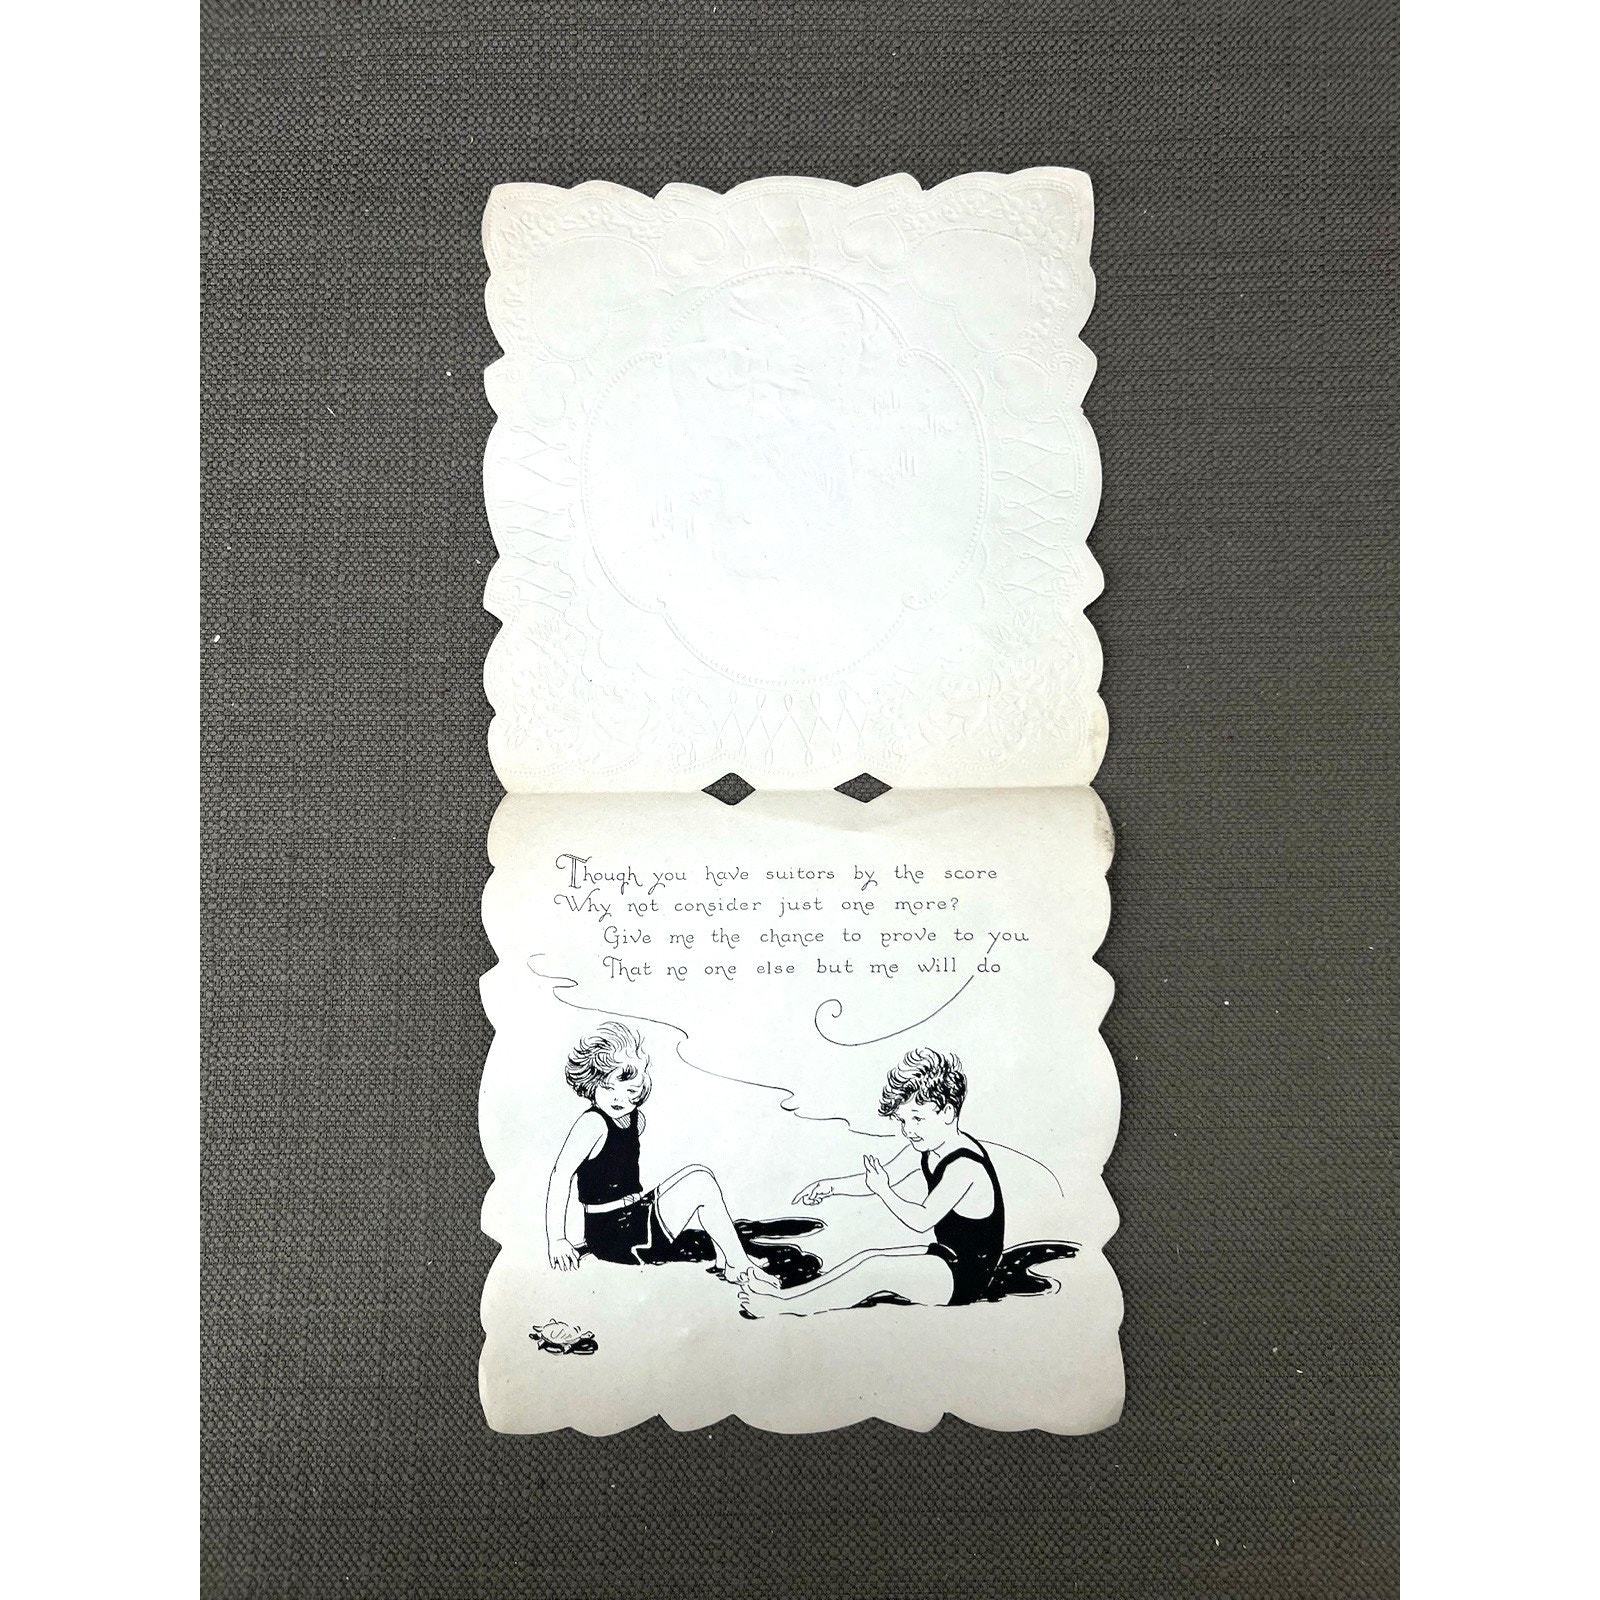 Though you have suitors by the score
Why not consider just one more?
Give me the chance to prove to you
That no one else but me will do